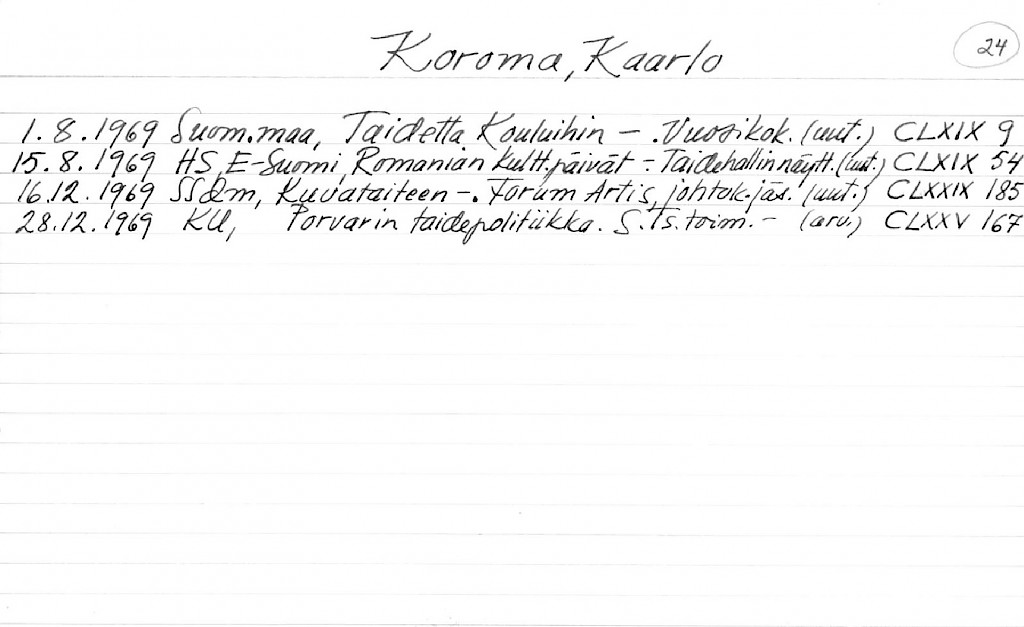 Koroma, Kaarlo
24
1.8.1969 Suom.maa, Taidetta Kouluihin – . Vuosikok. (uut.) CLXIX 9
15.8.1969 HS, E-Suomi, Romanian kultt.päivät – Taidehallin näytt. (uut.) CLXIX 54
16.12.1969 SSdm, Kuvataiteen –. Forum Artis, johtok.jäs. (uut.) CLXXIX 185
28.12.1969 KU, Porvarin taidepolitiikka. S.Ts.toim. – (arv.) CLXXV 167